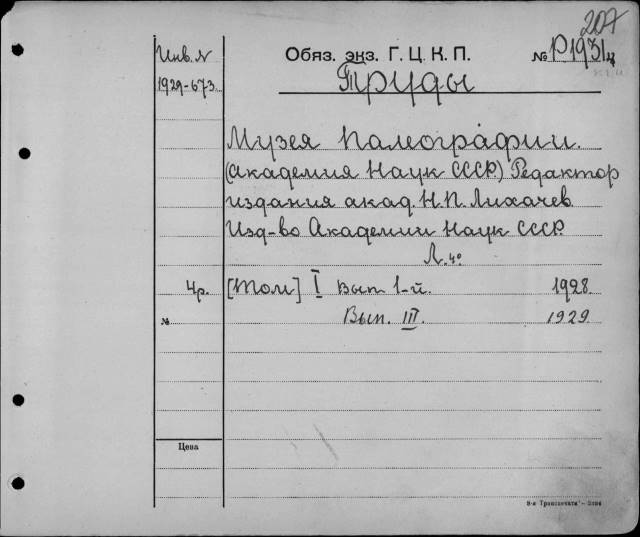 207
Инв. №
Обяз. экз. Г. Ц. К. П.
№ Р1931/ч
1929-673
Труды
Музея Палеографии.
(Академия Наук СССР.) Редактор
издания акад. Н. П. Лихачев.
Изд-во Академии Наук СССР.
Л. 4°
4р. [Том] I Вып 1-й. 1928
№ Вып. III. 1929
Цена